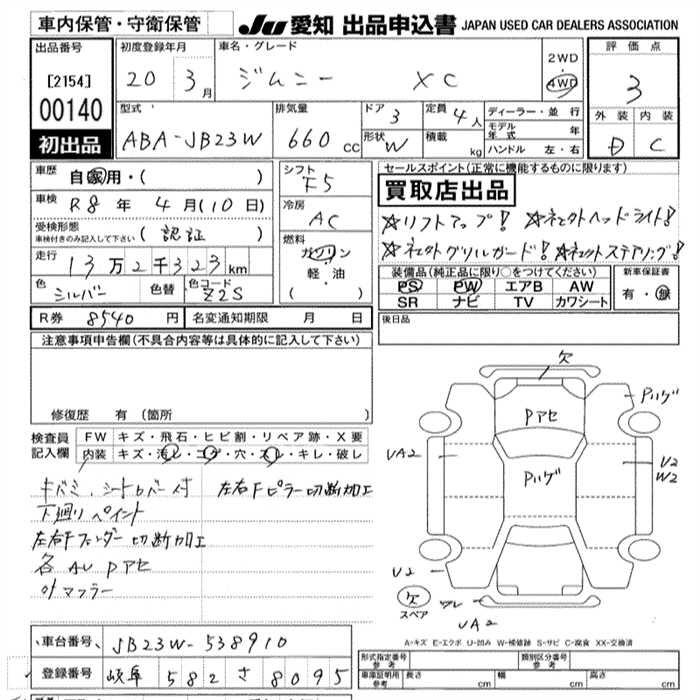 車内保管・守衛保管 JU 愛知 出品申込書 JAPAN USED CAR DEALERS ASSOCIATION
出品番号 初度登録年月 車名・グレード 評価点
[2154] 20 3月 ジムニー XC 2WD・4WD 3
00140 型式 排気量 ドア 3 定員 4人 ディーラー・並行 外装 内装
初出品 ABA-JB23W 660cc 形状 W 積載 kg モデル年式 年 D C
ハンドル 左・右
車歴 自家用・( ) シフト F5 セールスポイント(正常に機能するものに限ります)
車検 R8年 4月(10日) 冷房 AC 買取店出品
受検形態 車検付きのみ記入して下さい (認証) 燃料 ガソリン・軽油 ( ) ☆リフトアップ! ☆ネエクトヘッドライト!
走行 13万2千323km ☆ネエクトグリルガード! ☆ネエクトステアリング!
色 シルバー 色替 色コード Z2S 装備品(純正品に限り○をつけてください) 新車保証書
PS PW エアB AW 有・無
SR ナビ TV カワシート
R券 8540円 名変通知期限 月 日 後日品
注意事項申告欄(不具合内容等は具体的に記入して下さい)
修復歴 有 (箇所 )
検査員記入欄 FW キズ・飛石・ヒビ割・リペア跡・X要
内装 キズ・汚レ・コゲ・穴・スレ・キレ・破レ
キバミ、シートカバー付 左右Fピラー切断加工
下廻りペイント
左右Fフェンダー切断加工
各AU Pアセ
外マフラー
欠
Pハゲ
Pアセ
UA2
Pハゲ
U2
W2
U2
欠 スペア
ワレ
UA2
A-キズ E-エクボ U-凹み W-補修跡 S-サビ C-腐食 XX-交換済
車台番号 JB23W-538910 形式指定番号 参考 類別区分番号 参考
登録番号 岐阜 582 さ 8095 車庫証明用参考 長さ cm 幅 cm 高さ cm